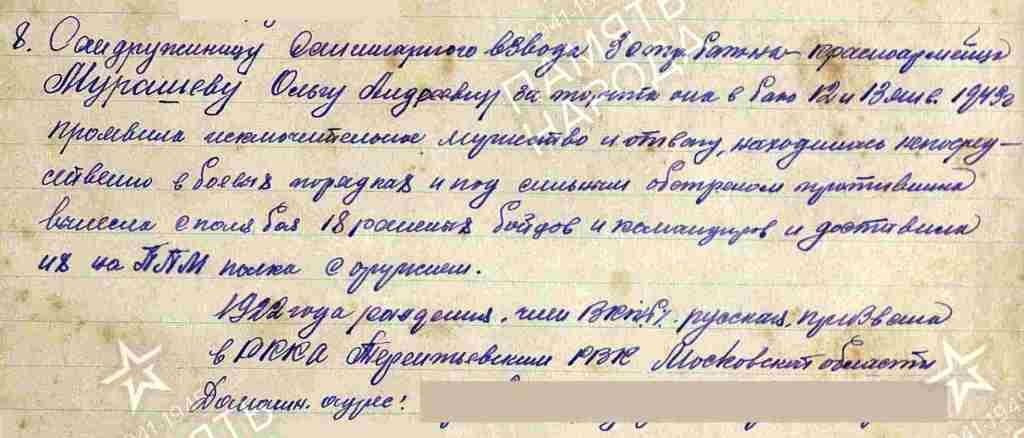 8. Сандружиницу санитарного взвода 3 стр. бат-на красноармейца
Мурашеву Ольгу Андреевну за то, что она в бою 12 и 13 янв. 1943 г
проявила исключительное мужество и отвагу, находилась непосред-
ственно в боевых порядках и под сильным обстрелом противника
вынесла с поля боя 18 раненых бойцов и командиров и доставила
их на ППМ полка с оружием.
1922 года рождения, член ВКП(б), русская, призвана
в РККА РВК Московской области
Домашн. адрес:
ПАМЯТЬ
НАРОДА
1941-1945